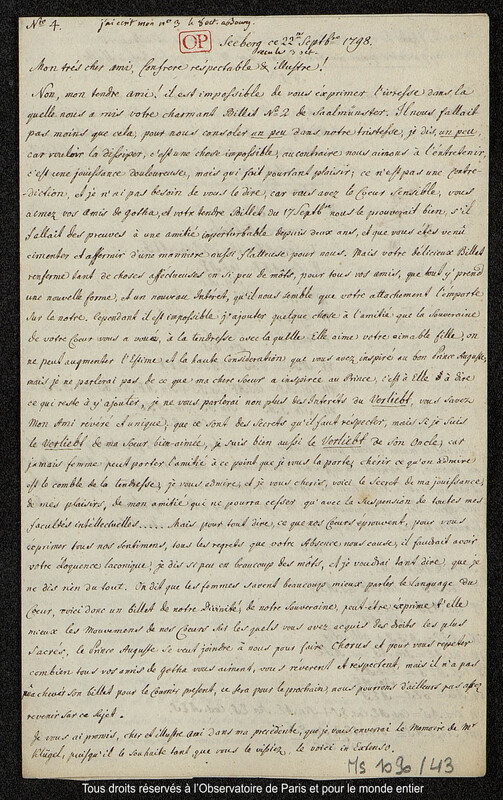 Nro 4. j'ai écrit mon n° 3 le 8 oct.
OP
Seeberg ce 22me Septbre 1798.
Mon très cher ami, Confrere réspectable & illustre!
Non, mon tendre ami! il est impossible de vous exprimer l'ivresse dans la
quelle nous a mis votre charmant Billet No. 2 de Saalmünster. Il nous fallait
pas moins que cela, pour nous consoler un peu dans notre tristesse, je dis un peu,
car vouloir la dissiper, c'est une chose impossible, au contraire nous aimons à l'entretenir,
c'est une jouissance douloureuse, mais qui fait pourtant plaisir; ce n'est pas une contra-
diction, et je n'ai pas besoin de vous le dire, car vous avez le Coeur Sensible, vous
aimez vos amis de Gotha, et votre tendre Billet du 17 Septbre nous le prouverait bien, s'il
fallait des preuves à une amitié imperturbable depuis deux ans, et que vous êtes venû
cimenter et affermir d'une manniere aussi flatteuse pour nous. Mais votre délicieux Billet
renferme tant de choses affectueuses en si peu de môts, pour tous vos amis, que tout y prend
une nouvelle forme, et un nouveau Intérêt, qu'il nous semble que votre attachement l'emporte
sur le notre. Cependant il est impossible j'ajouter quelque chose à l'amitié que la Souveraine
de votre Coeur vous a vouée, à la tendresse avec la qu'elle Elle aime votre aimable fille; on
ne peut augmenter l'Estime et la haute Considération que vous avez inspiré au bon Prince Auguste,
mais je ne parlerai pas de ce que ma chere Soeur a inspirée au Prince, c'est à Elle à dire
ce qui reste à y ajouter, je ne vous parlerai non plus des Interets du Verliebt, vous savez
Mon Ami révéré et unique, que ce sont des Secrets qu'il faut respecter, mais si je suis
le Verliebt de ma Soeur bien-aimée, je suis bien aussi le Verliebt de Son Oncle; car
jamais femme peut porter l'amitié à ce point que je vous la porte; chérir ce qu'on admire
est le comble de la tendresse; je vous admire, et je vous cheris, voici le Secret de ma jouissance,
de mes plaisirs, de mon amitié qui ne pourra cesser qu'avec la Suspension de toutes mes
facultés intellectuelles..... Mais pour tout dire, ce que nos Coeurs eprouvent, pour vous
exprimer tous nos Sentimens, tous les regrets que votre Absence nous cause, il faudrait avoir
votre éloquence laconique; je dis si peu en beaucoup des mots, et je voudrai tant dire, que je
ne dis rien du tout. On dit que les femmes savent beaucoup mieux parler le Language du
Coeur, voici donc un billet de notre Divinité, de notre Souveraine, peut-être exprime t'elle
mieux les Mouvemens de nos Coeurs sur les quels vous avez acquis des droits les plus
sacrés, le Prince Auguste se veut joindre à nous pour faire Chorus et pour vous répéter
combien tous vos amis de Gotha vous aiment, vous réverent et respectent, mais il n'a pas
achevé son billet pour le Courier présent, ce sera pour le prochain; nous pourrons d'ailleurs pas assez
revenir sur ce Sujet.
Je vous ai promis, cher et illustre Ami dans ma précédente, que je vais enverrai le Memoire de Mr
Klügel, puisqu'il le souhaite tant que vous le visiez, le voici in Extenso.
Ms 1090 / 43
Tous droits réservés à l'Observatoire de Paris et pour le monde entier